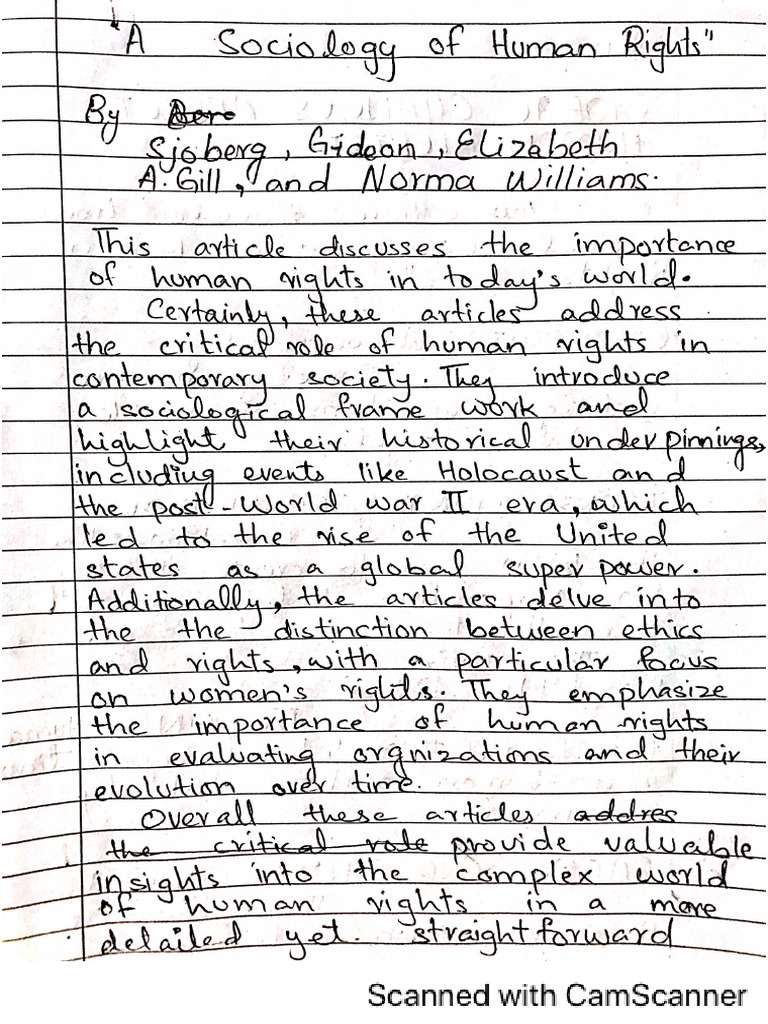 "A Sociology of Human Rights"
By
Sjoberg, Gideon, Elizabeth
A. Gill, and Norma Williams.
This article discusses the importance
of human rights in today's world.
Certainly, these articles address
the critical role of human rights in
contemporary society. They introduce
a sociological frame work and
highlight their historical underpinnings,
including events like Holocaust and
the post-World war II era, which
led to the rise of the United
states as a global super power.
Additionally, the articles delve into
the the distinction between ethics
and rights, with a particular focus
on women's rights. They emphasize
the importance of human rights
in evaluating orgnizations and their
evolution over time.
Overall these articles addres
the critical role provide valuable
insights into the complex world
of human rights in a more
detailed yet. straight forward
Scanned with CamScanner